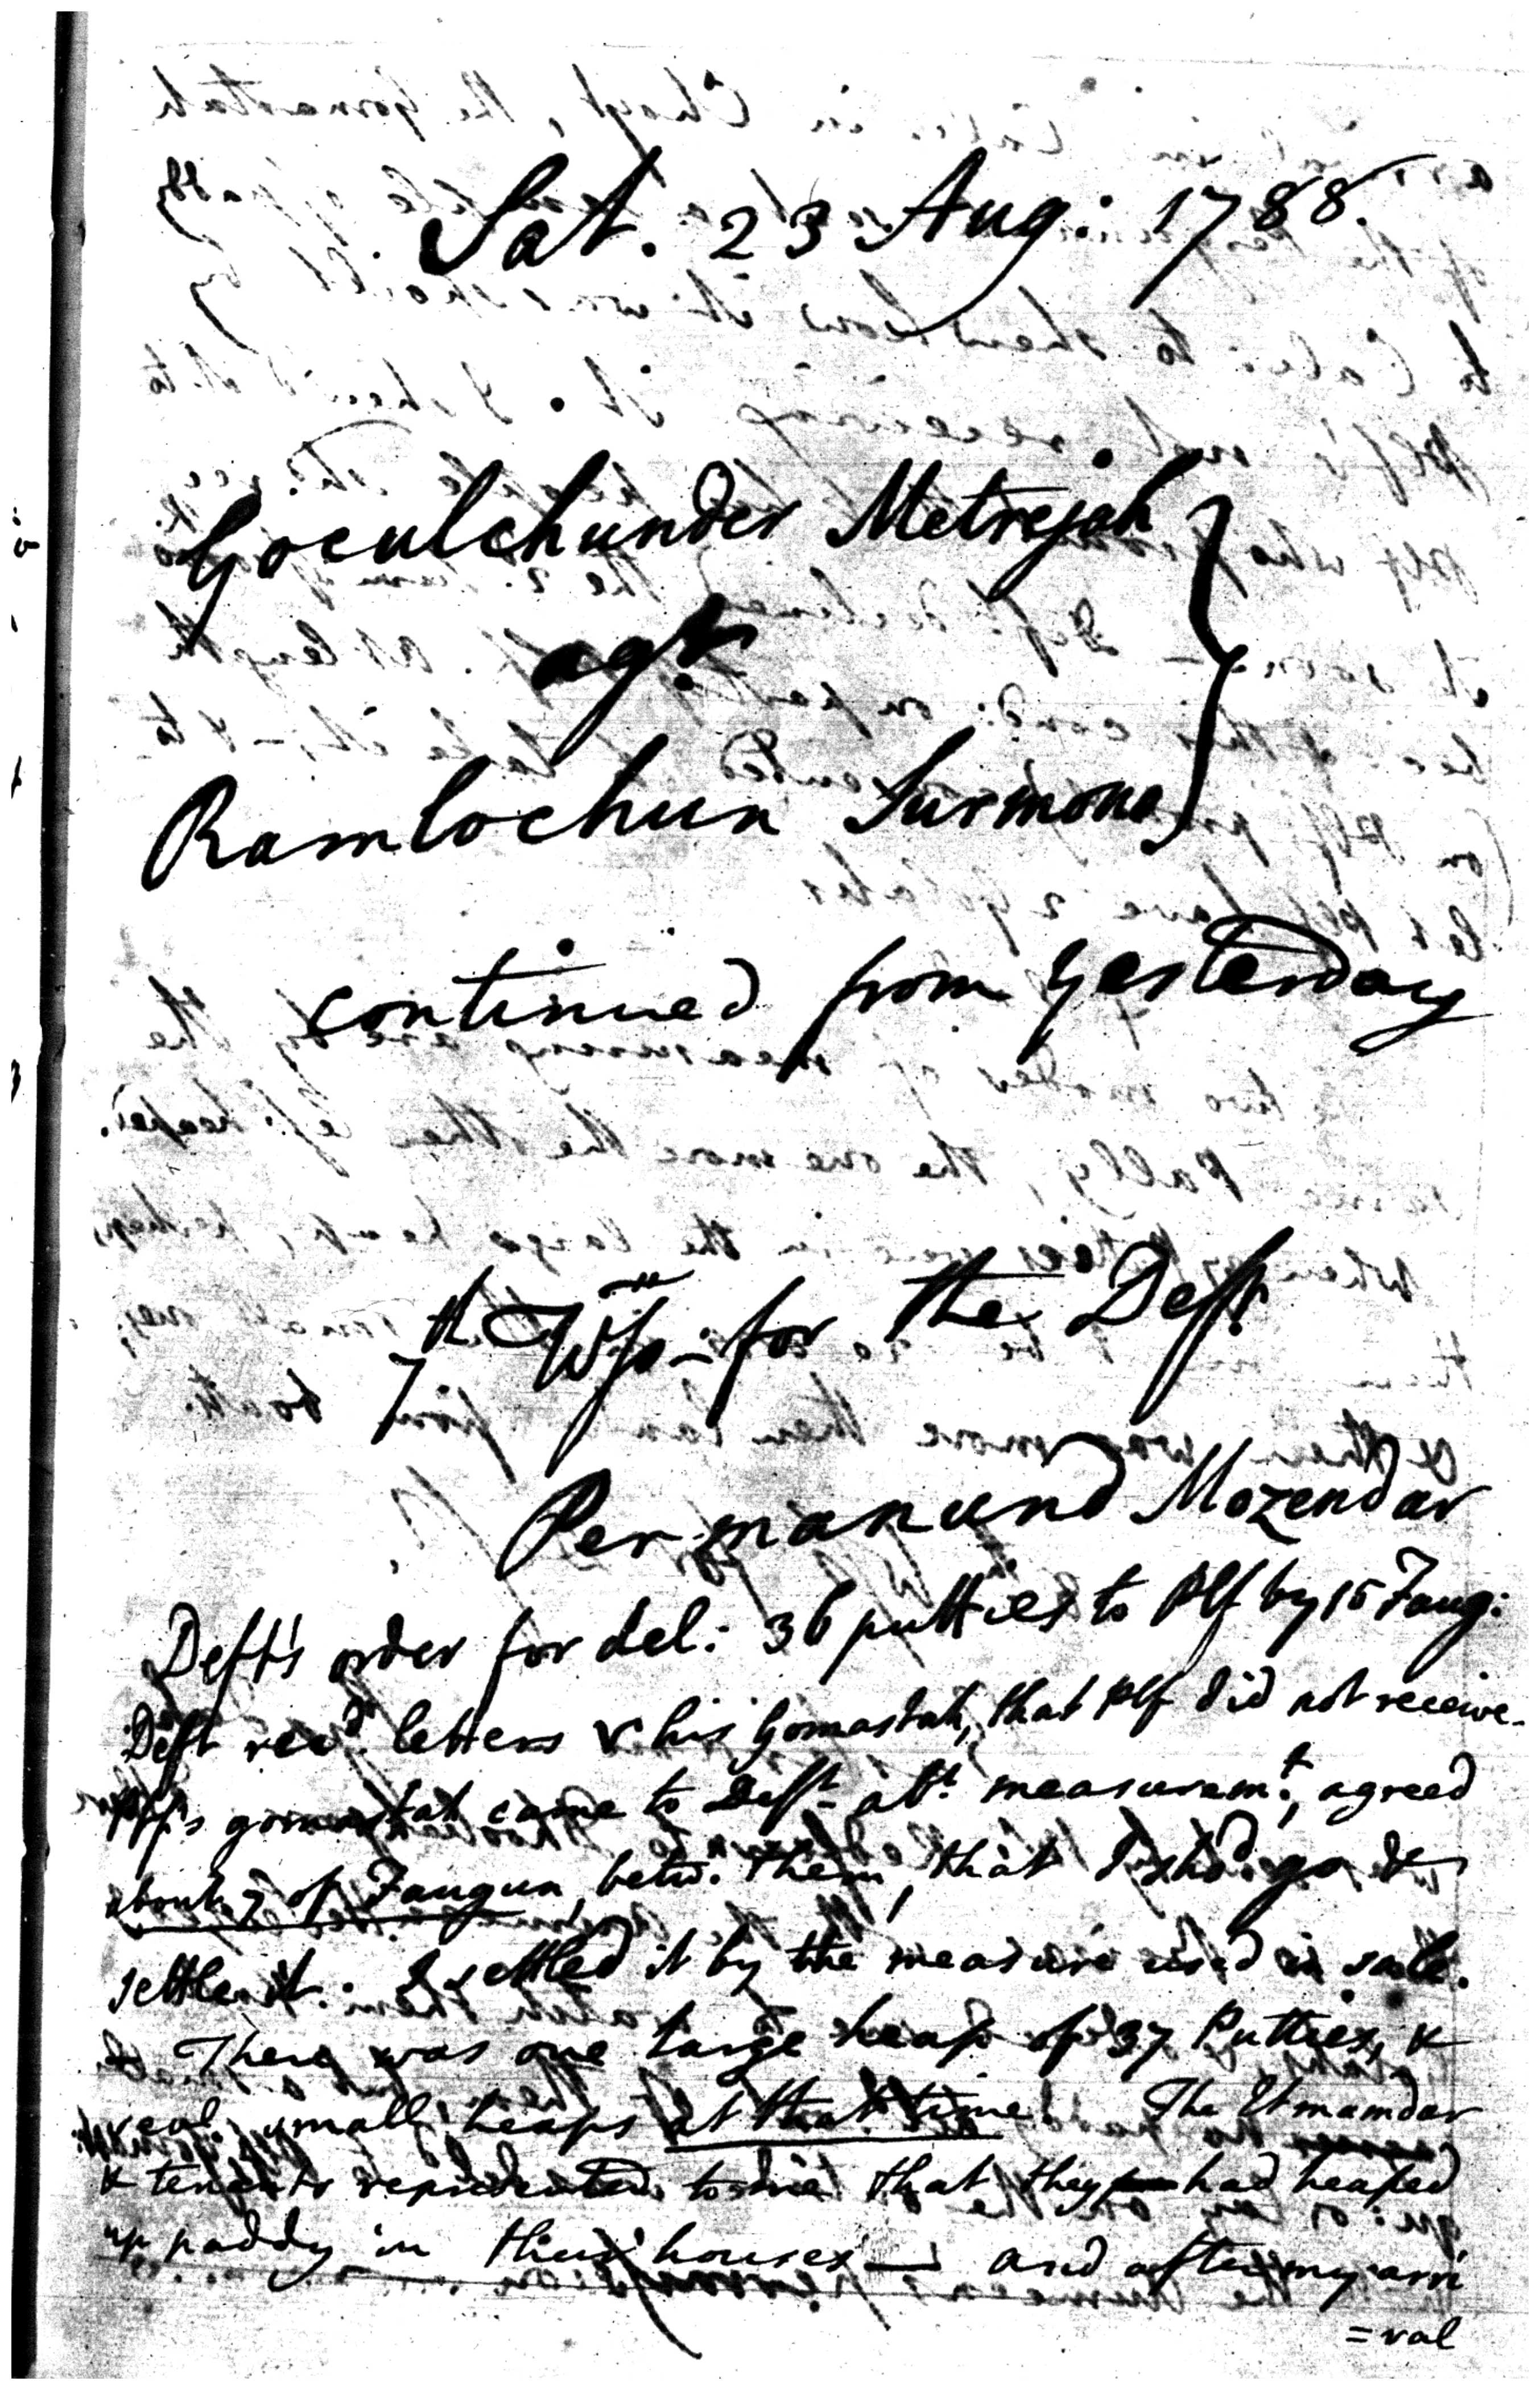 Sat. 23 Aug: 1788.
Goculchunder Metrejah
agt
Ramlochun Surmono
continued from yesterday
7th Wss for the Deft
Permanund Mozendar
Deft's order for del: 36 putties to Plf by 15 Faug:
Deft recd letters & his Gomastah, that Plf did not receive.
Plf's gomastah came to Deft abt measuremt, agreed
about 7 of Faugun, betw. them, that I shd go &
settle it. I settled it by the measure used in sale.
There was one large heap of 37 Putties, &
sevl small heaps at that time. The Etmamdar
& tenants represented to me that they had heaped
up paddy in their houses — and after my arri
=val